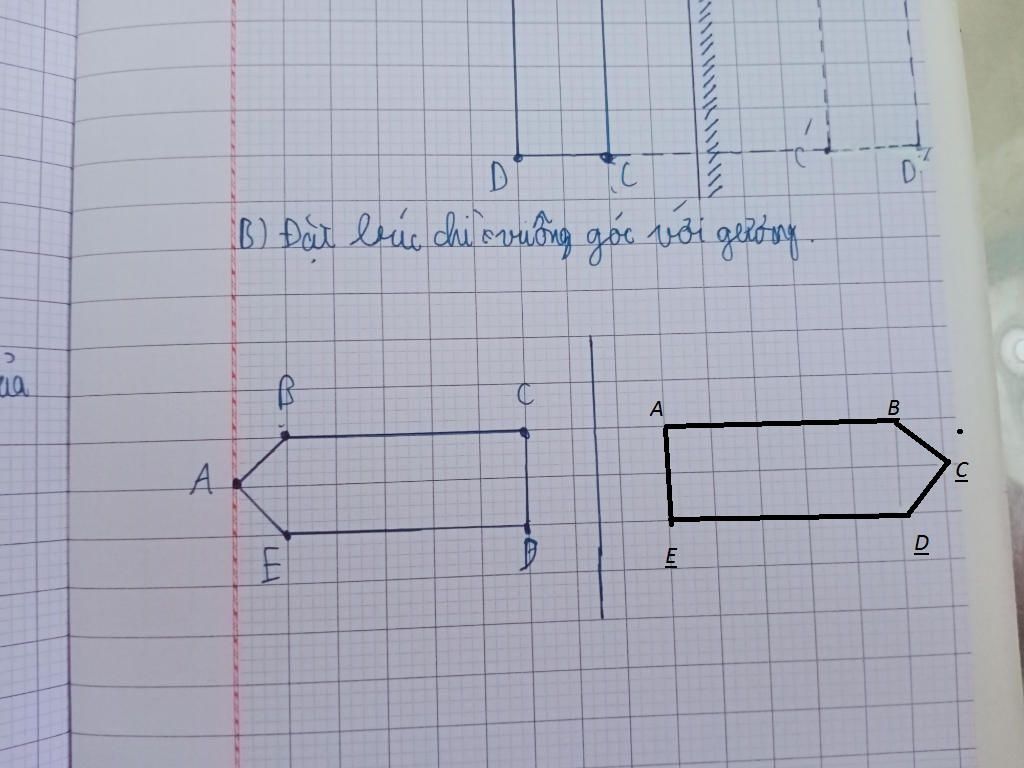 D C C' D'
B) Đặt bút chì vuông góc với gương.
ủa
B C A B
A C
E D E D